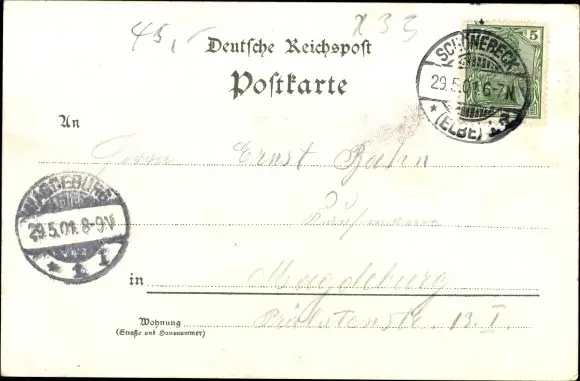 45,- X 33
Deutsche Reichspost
Postkarte
5
SCHÖNEBECK
29.5.01 6-7N.
* (ELBE)
An
Herrn Ernst Bahn
Kaufmann
MAGDEBURG
29.5.01. 8-9V
* 1 I
in Magdeburg
Wohnung
(Straße und Hausnummer)
Prälatenstr. 13. I.